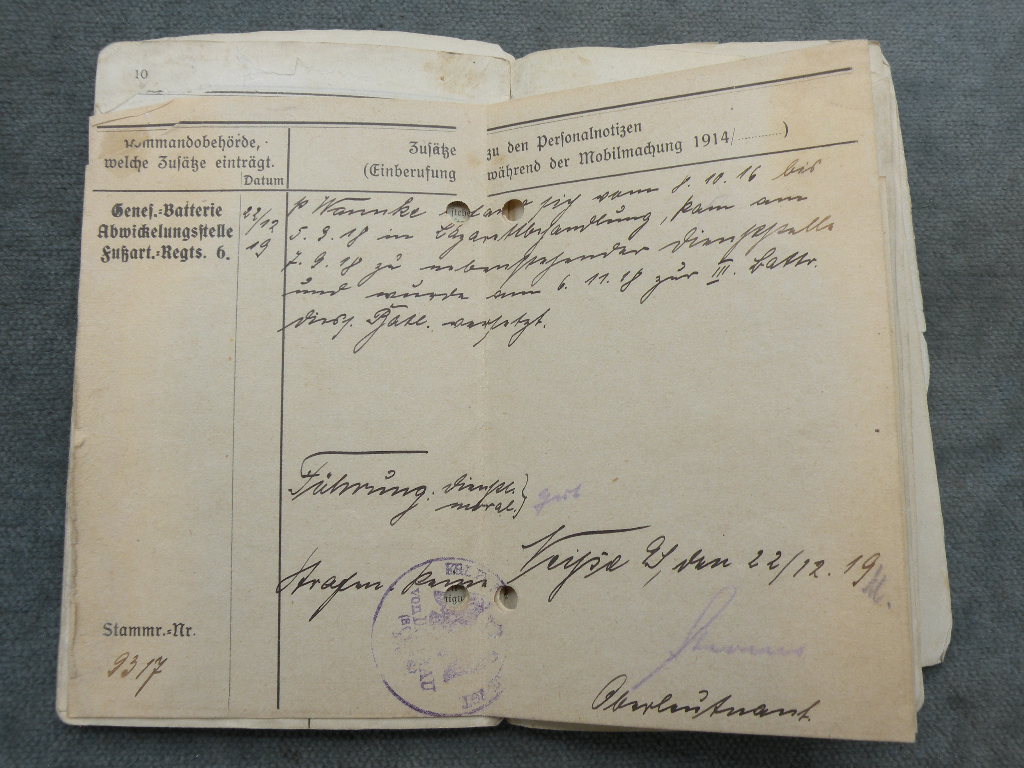 10
Kommandobehörde,
welche Zusätze einträgt.
Datum
Zusätze zu den Personalnotizen
(Einberufung während der Mobilmachung 1914/ )
Genes.-Batterie
Abwickelungsstelle
Fußart.-Regts. 6.
22/12
19
p Wannke sich vom 8. 10. 16 bis
5. 9. 18 in Lazarettbehandlung, kam am
7. 9. 18 zu nebenstehender Dienststelle
und wurde am 6. 11. 18 zur III. Battr.
dies. Batl. versetzt.
Führung: dienstl. }
moral. } gut
Strafen: keine
Neiße, den 22/12. 19
Stammr.-Nr.
9317
Oberleutnant